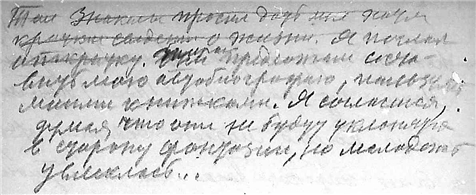 Там знакомы просил дать им
крючки сведения о жизни. Я послал
открытку. Они предложили соста-
вить мою автобиографию, пользуясь
моими книжками. Я согласился,
думая, что они не будут уклоняться
в сторону фантазии, но молодёжь
увлеклась...